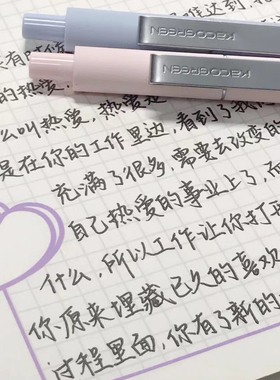 有时你
KACOGREEN
的热爱.
KACOGREEN
么叫热爱，热爱是
是在你的工作里边，看到了我
充满了很多，需要去改变的
自己热爱的事业上了，而
什么，所以工作让你打
你原来埋藏已久的喜欢
过程里面，你有了新的